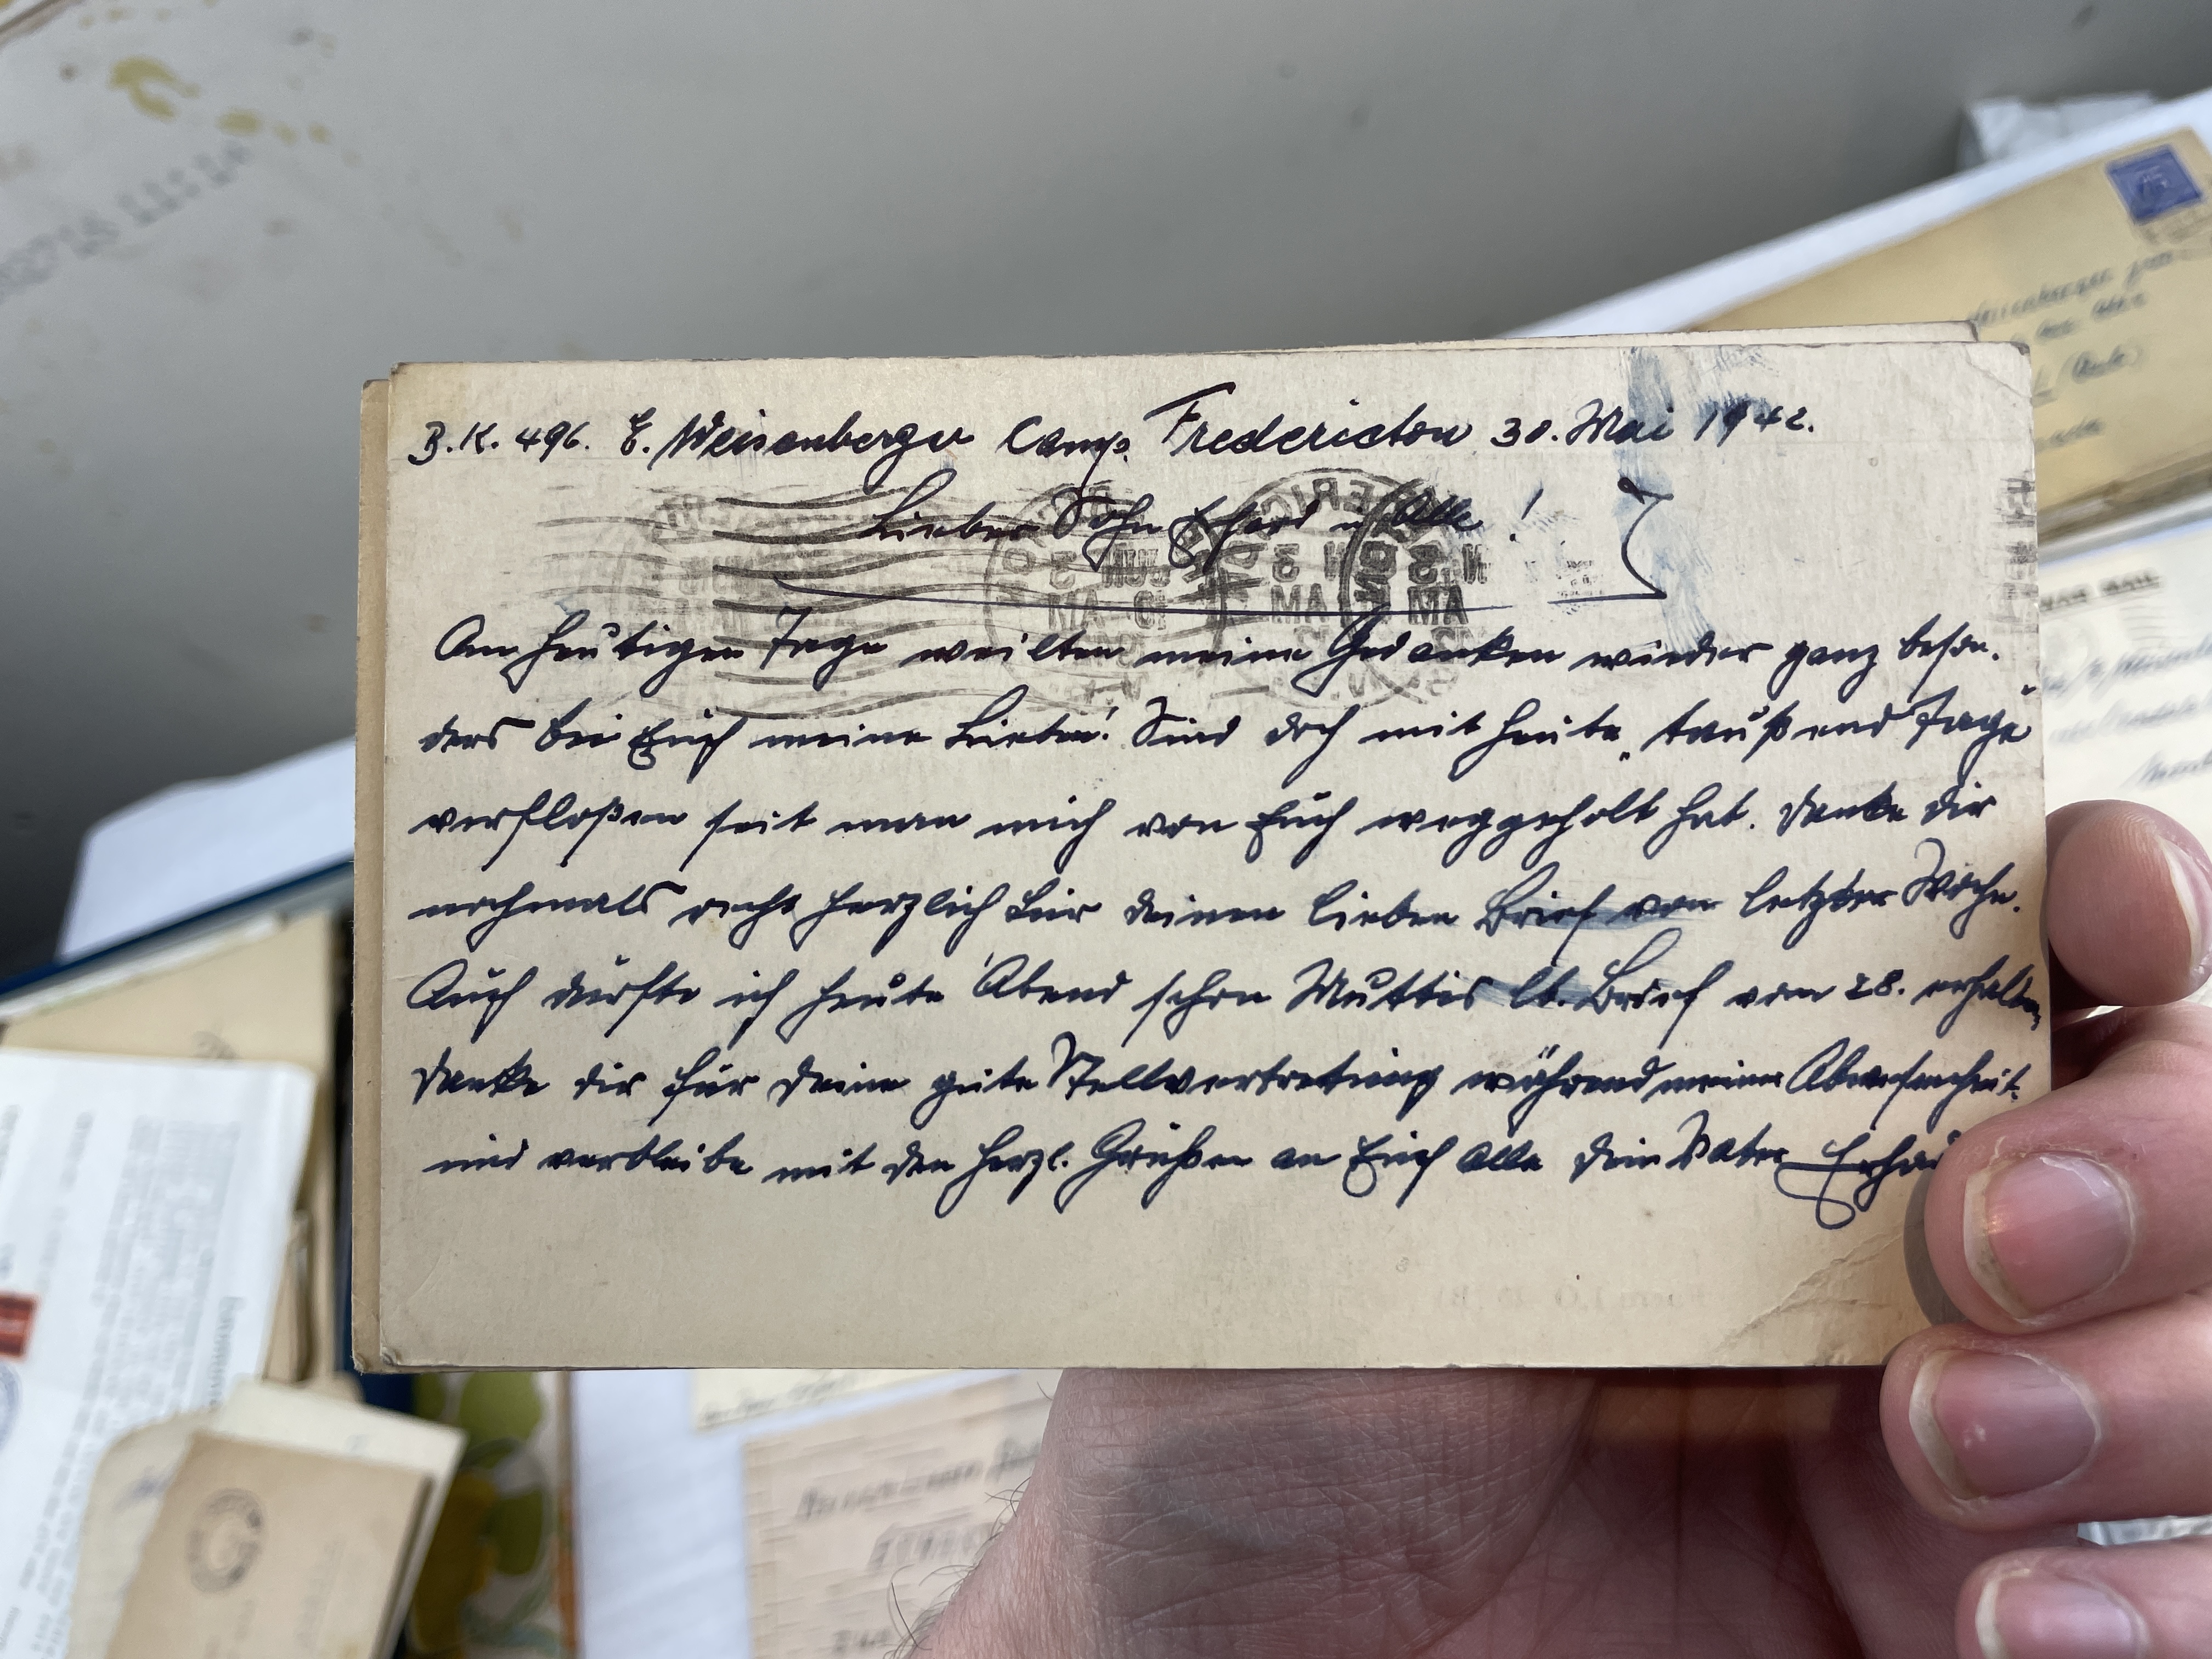 B.K. 496. E. Weisenberger Camp. Fredericton 30. Mai 1942.
Lieber Sohn Erhard u. Alle!
Am heutigen Tage weilten meine Gedanken wieder ganz beson-
ders bei Euch meine Lieben! Sind doch mit heute „taußend Tage"
verfloßen seit man mich von Euch weggeholt hat. Danke dir
nochmals recht herzlich für deinen lieben Brief von letzter Woche.
Auch durfte ich heute Abend schon Muttis lb. Brief vom 28. erhalten,
danke dir für deine gute Stellvertretung während meiner Abwesenheit.
und verbleibe mit den herzl. Grüßen an Euch Alle dein Vater